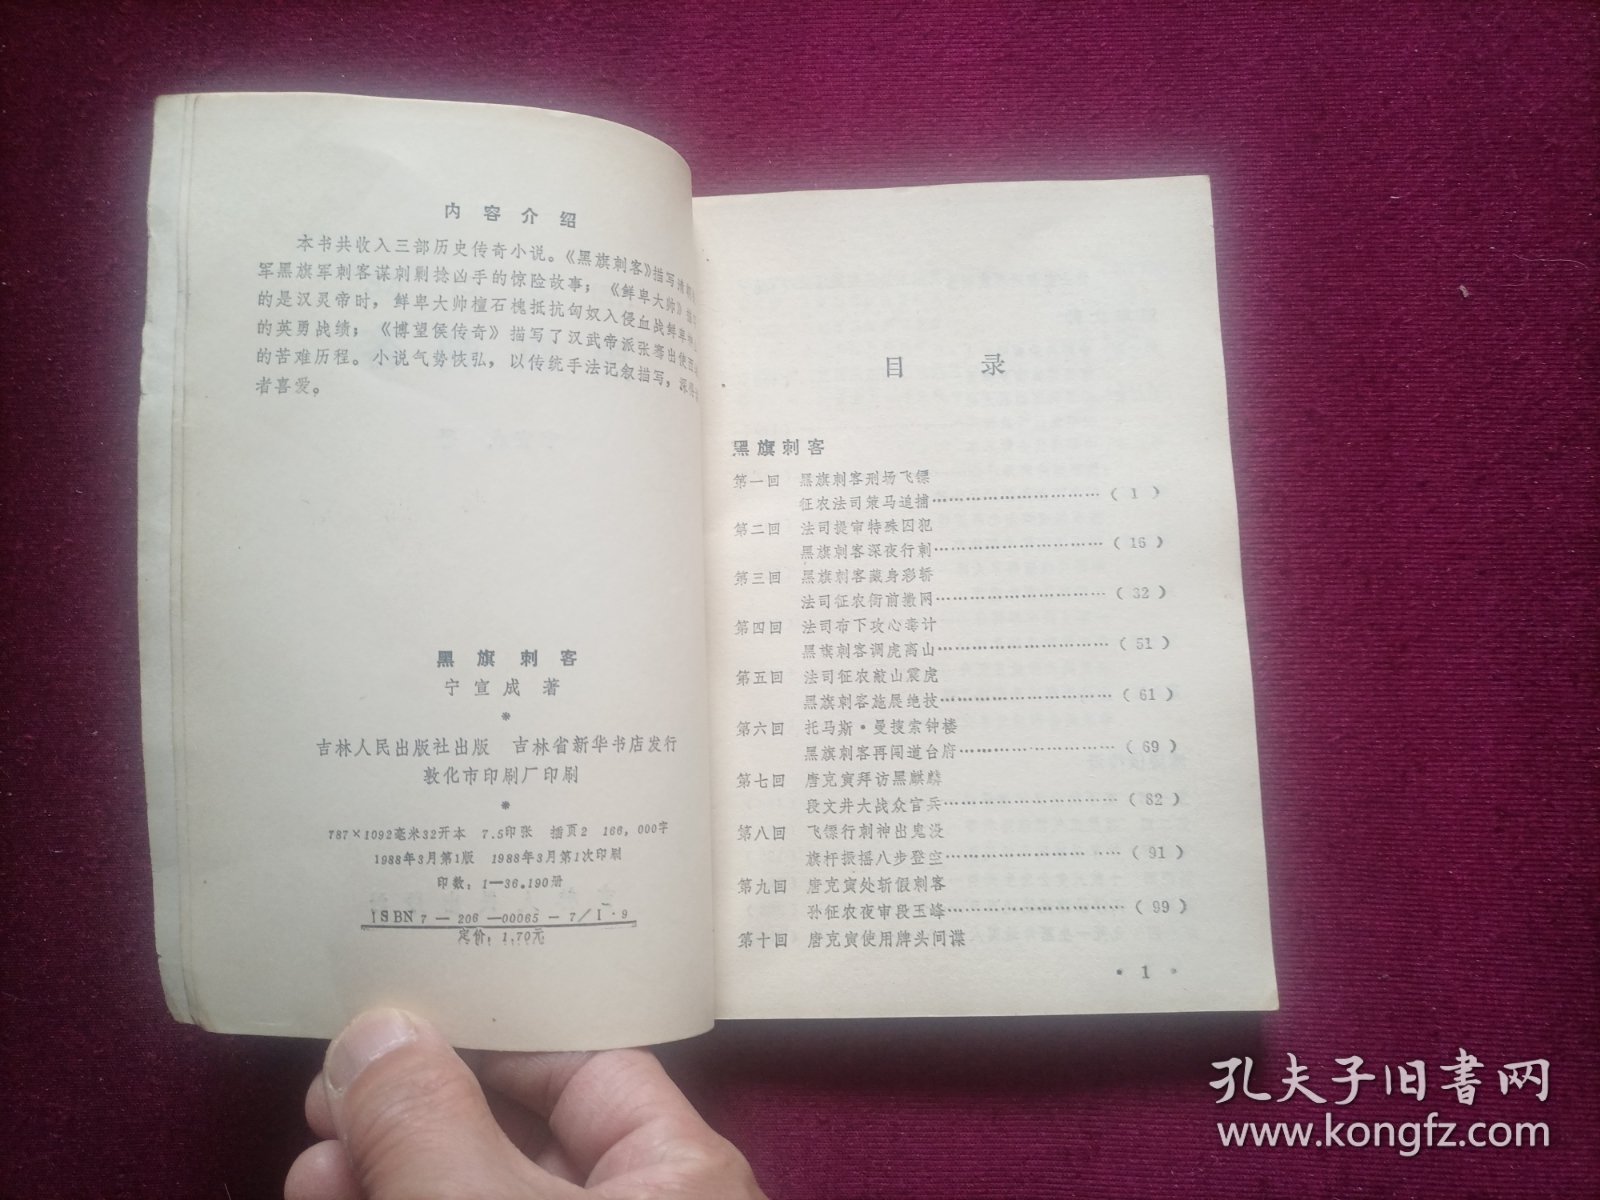 内容介绍
本书共收入三部历史传奇小说。《黑旗刺客》描写清朝
军黑旗军刺客谋刺剿捻凶手的惊险故事；《鲜卑大帅》描
的是汉灵帝时，鲜卑大帅檀石槐抵抗匈奴入侵血战鲜卑
的英勇战绩；《博望侯传奇》描写了汉武帝派张骞出使西
的苦难历程。小说气势恢弘，以传统手法记叙描写，深
者喜爱。
黑旗刺客
宁宣成 著
*
吉林人民出版社出版 吉林省新华书店发行
敦化市印刷厂印刷
*
787×1092毫米32开本 7.5印张 插页2 166,000字
1988年3月第1版 1988年3月第1次印刷
印数：1—36,190册
ISBN 7—206—00065—7/I·9
定价：1.70元
目 录
黑旗刺客
第一回 黑旗刺客刑场飞镖
征农法司策马追捕……………………………（1）
第二回 法司提审特殊囚犯
黑旗刺客深夜行刺……………………………（16）
第三回 黑旗刺客藏身彩轿
法司征农衙前撒网……………………………（32）
第四回 法司布下攻心毒计
黑旗刺客调虎离山……………………………（51）
第五回 法司征农敲山震虎
黑旗刺客施展绝技……………………………（61）
第六回 托马斯·曼搜索钟楼
黑旗刺客再闯道台府…………………………（69）
第七回 唐克寅拜访黑麒麟
段文井大战众官兵……………………………（82）
第八回 飞镖行刺神出鬼没
旗杆振摇八步登空……………………………（91）
第九回 唐克寅处斩假刺客
孙征农夜审段玉峰……………………………（99）
第十回 唐克寅使用牌头间谍
·1·
孔夫子旧书网
www.kongfz.com